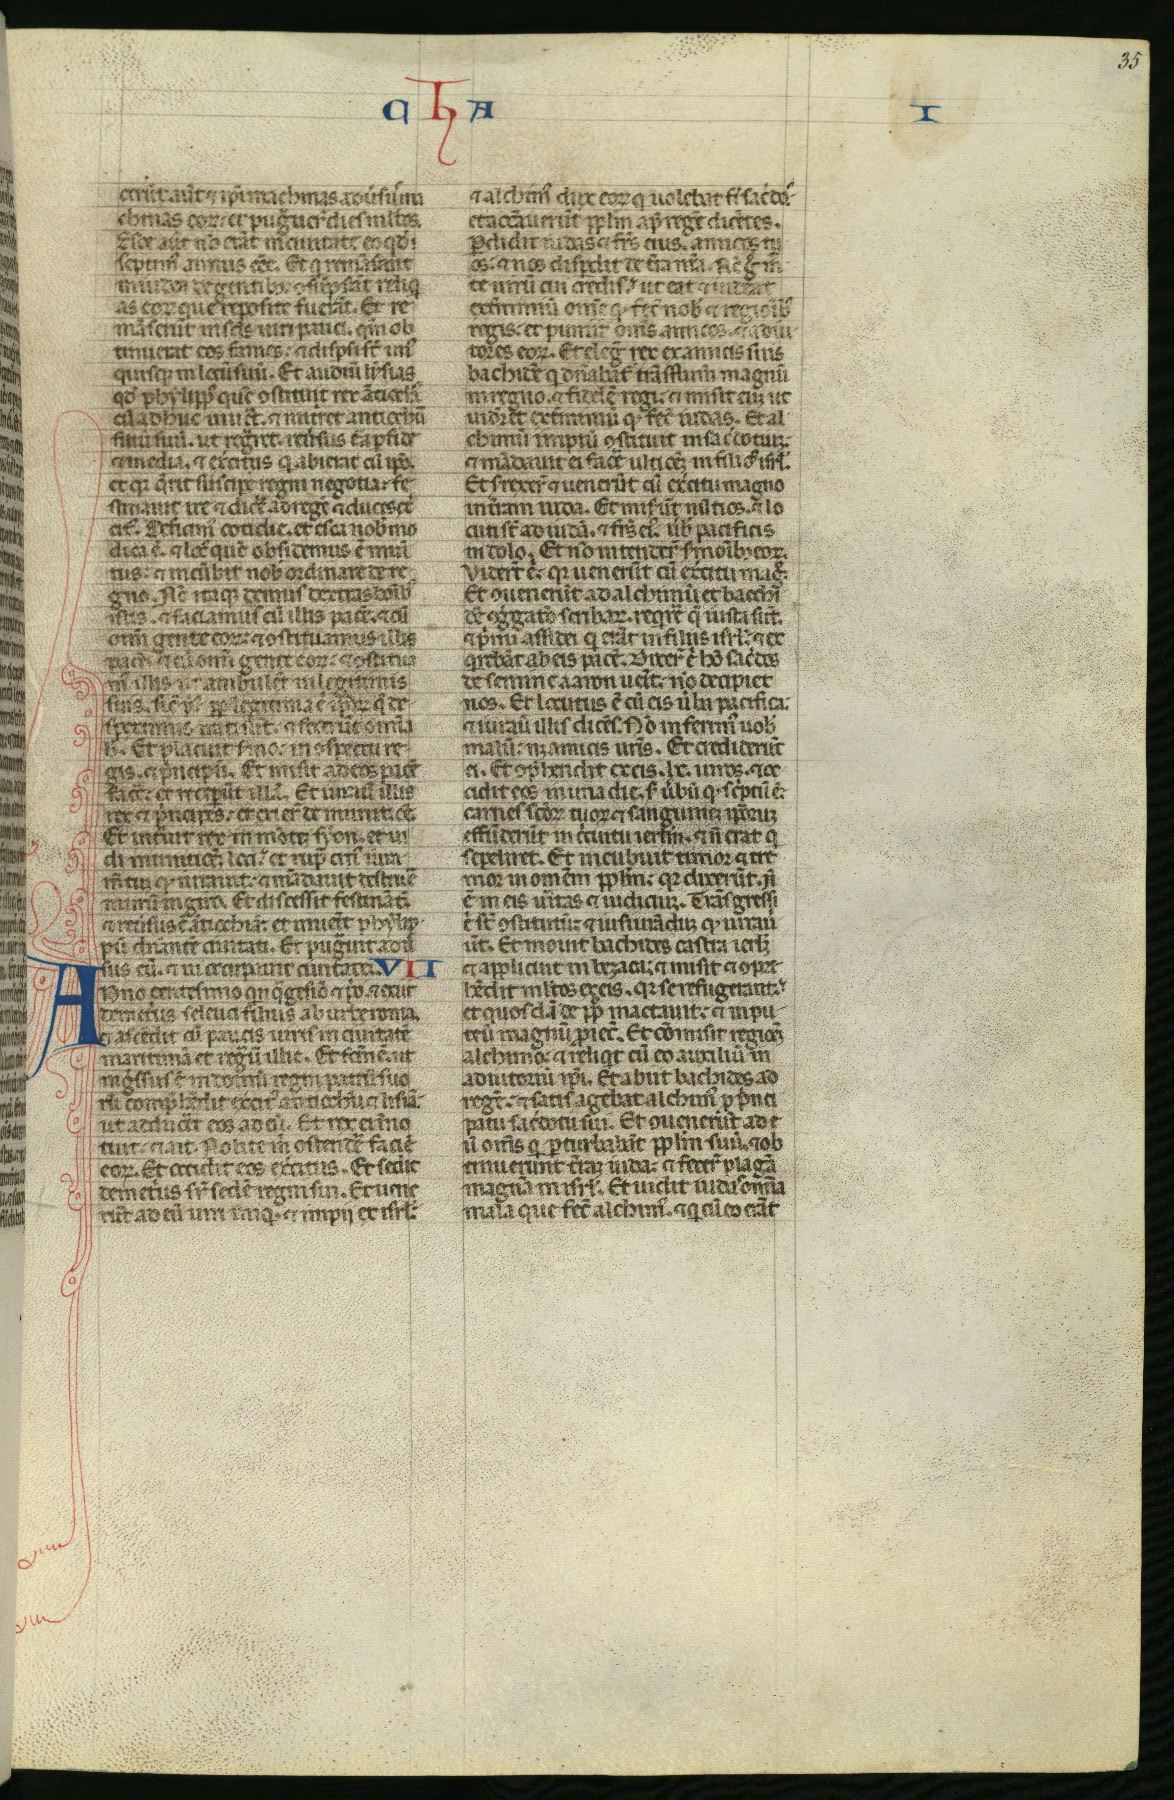 35
C H A
I
cerūt aūt ⁊ ip̄i machinas aduersū ma
chinas eoꝝ· et pugn̄uer̄ dies ml̄tos
Esce aūt nō erāt in ciuitate eo qđ
septim̄ annus eēt. Et q remāserāt
in iudea de gentibꝫ
as eoꝝ que reposite fuerāt. Et re
māserūt in sc̄is uiri pauci. qm̄ ob
tinuerat eos fames· ⁊ disp̄si st̄ un̄
quisqꝫ in locū suū. Et audiuit lysias
qđ phylipp̄ quē ↄstituit rex antioch̄
cū adhuc uiueret ⁊ nutriret antiochū
filiū suū. ut regn̄et· reūsus ē a p̄side
⁊ media. ⁊ exc̄itus q abierat cū ip̄o.
et qꝛ q̄rit suscip̄e regni negotia· fe
stinauit ire ⁊ dic̄e ad regē ⁊ duces ex̄
cit̄. Deficim̄ cotidie. et esca nob̄ mo
dica ē. ⁊ loc̄ quē obsidemus ē muni
tus· ⁊ incūbit nob̄ ordinare de re
gno. Nc̄ itaqꝫ demus dextras hoīb̄
istis. ⁊ faciamus cū illis pacē. ⁊ cū
omni gente eoꝝ· ⁊ ↄstituamus illis
pacē. ⁊ cū omī gente eoꝝ· ⁊ ↄstitua
m̄ illis ut ambulēt in legitimis
suis. sic̄ p̄us pp̄ legitima
speximus irati sūt. ⁊ fecerūt omīa
h̄. Et placuit s̄mo· in ↄspectu re
gis. ⁊ p̄ncipū. Et misit ad eos pacē
facē· et receperūt illā. Et iurauit illis
rex ⁊ p̄ncipes· et exier̄ de munitiōe.
Et intrauit rex in mōtē syon. et ui
dit munitiōeꝫ loci· et rup̄ citi iura
m̄tū qđ iurauit· ⁊ mādauit destruē
murū in giro. Et discessit festinātē.
⁊ reūsus ē antiochiā· et inuenit phylip
pū dn̄antē ciuitati. Et pugn̄auit aduer
sus eū. ⁊ ui occupauit ciuitatē. VII
Anno centesimo qnqgesīo ⁊ p̄o. ⁊ exiit
demetrius seleuci filius ab urbe roma.
⁊ ascēdit cū paucis uiris in ciuitatē
maritimā et regn̄uit illic. Et fcm̄ ē. ut
ingressus ē in domū regni patrū suo
rū comphēdit exc̄it̄ antiochū ⁊ lisiā·
ut adducēt eos ad eū. Et rex ei inno
tuit· ⁊ ait. Nolite m̄ ostendē faciē
eoꝝ. Et occidit eos exc̄itus. Et sedit
demetrius sr̄ sedē regni sui. Et uene
rūt ad eū uiri iniqi ⁊ impij ex isrl̄·
⁊ alchim̄ dux eoꝝ q uolebat fi̅ sac̄dos·
et accūsauerūt pp̄lm apd̄ regē dicētes.
Perdidit iudas ⁊ fr̄s eius. amicos tu
os· ⁊ nos dispersit de tr̄a nr̄a. Nc̄ g̊ mi
te uirū cui credis· ut eat ⁊ uideat
extminiū omē qđ fec̄ nob̄ ⁊ regioīb̄
regis· et puniat om̄s amicos. ⁊ adiu
tores eoꝝ. Et eleg̅ rex ex amicis suis
bachidē q dn̄abat̄ trās flum̄ magnū
in regno. ⁊ fidelē regi· ⁊ misit eū ut
uideret extminiū qđ fec̄ iudas. Et al
chimū impiū ↄstituit in sac̄dotiū·
⁊ mādauit ei facē ultiōeꝫ in filios isrl̄.
Et surrexer̄ ⁊ uenerūt cū exc̄itu magno
in tr̄am iuda. Et miserūt nūtios. ⁊ lo
cuti st̄ ad iudā. ⁊ fr̄s ei. ūb̄ pacificis
in dolo. Et nō intender̄ s̄moībꝫ eoꝝ.
Viderūt ē· qꝛ uenerūt cū exc̄itu mag̅.
Et ↄuenerūt ad alchimū et bacchi
dē ↄgregatō scribaꝝ. reqrē q̄ iusta sūt.
⁊ p̄mi assidei q erāt in filiis isrl̄· ⁊ ex
qrebāt ab eis pacē. Dixer̄ ē hō sac̄dos
de semine aaron uenit· nō decipiet
nos. Et locutus ē cū eis ūba pacifica·
⁊ iurauit illis dicēs. Nō inferem̄ uob̄
malū· nꝫ amicis ur̄is. Et crediderūt
ei. Et ↄprehendit ex eis. lx. uiros. ⁊ oc
cidit eos in una die. s̄ ūbū qđ sc̄ptū ē·
carnes sc̄oꝝ tuoꝝ ⁊ sanguinē ip̄oruꝫ
effuderūt in circuitu ierlm̄. ⁊ nō erat q
sepeliret. Et incubuit timor ⁊ tre
mor in omēm pp̄lm· qꝛ dixerūt. n̄
ē in eis ueritas ⁊ iudiciuꝫ. Trāsgressi
ē st̄ ↄstitutū· ⁊ iusiurādū qđ iuraue
rūt. Et mouit bachides castra ab ierlm̄
⁊ applicuit in bezaca· ⁊ misit ⁊ ↄpre
hēdit ml̄tos ex eis. qꝛ se refugerant·
et quosdā de pp̄lo mactauit· ⁊ in pu
teū magnū ꝓiec̄. Et cōmisit regioꝫ
alchimo· ⁊ reliqt cū eo auxiliū in
adiutoriū ip̄i. Et abiit bachides ad
regē· ⁊ satis agebat alchim̄ ꝓ p̄nci
patu sac̄dotii sui. Et ↄuenerūt ad e
ū om̄s q ꝑturbabāt pp̄lm suū. ⁊ ob
tinuerunt tr̄aꝫ iuda· ⁊ fecer̄ plagā
magnā in isrl̄. Et uidit iudas omīa
mala que fec̄ alchim̄. ⁊ q cū eo erāt